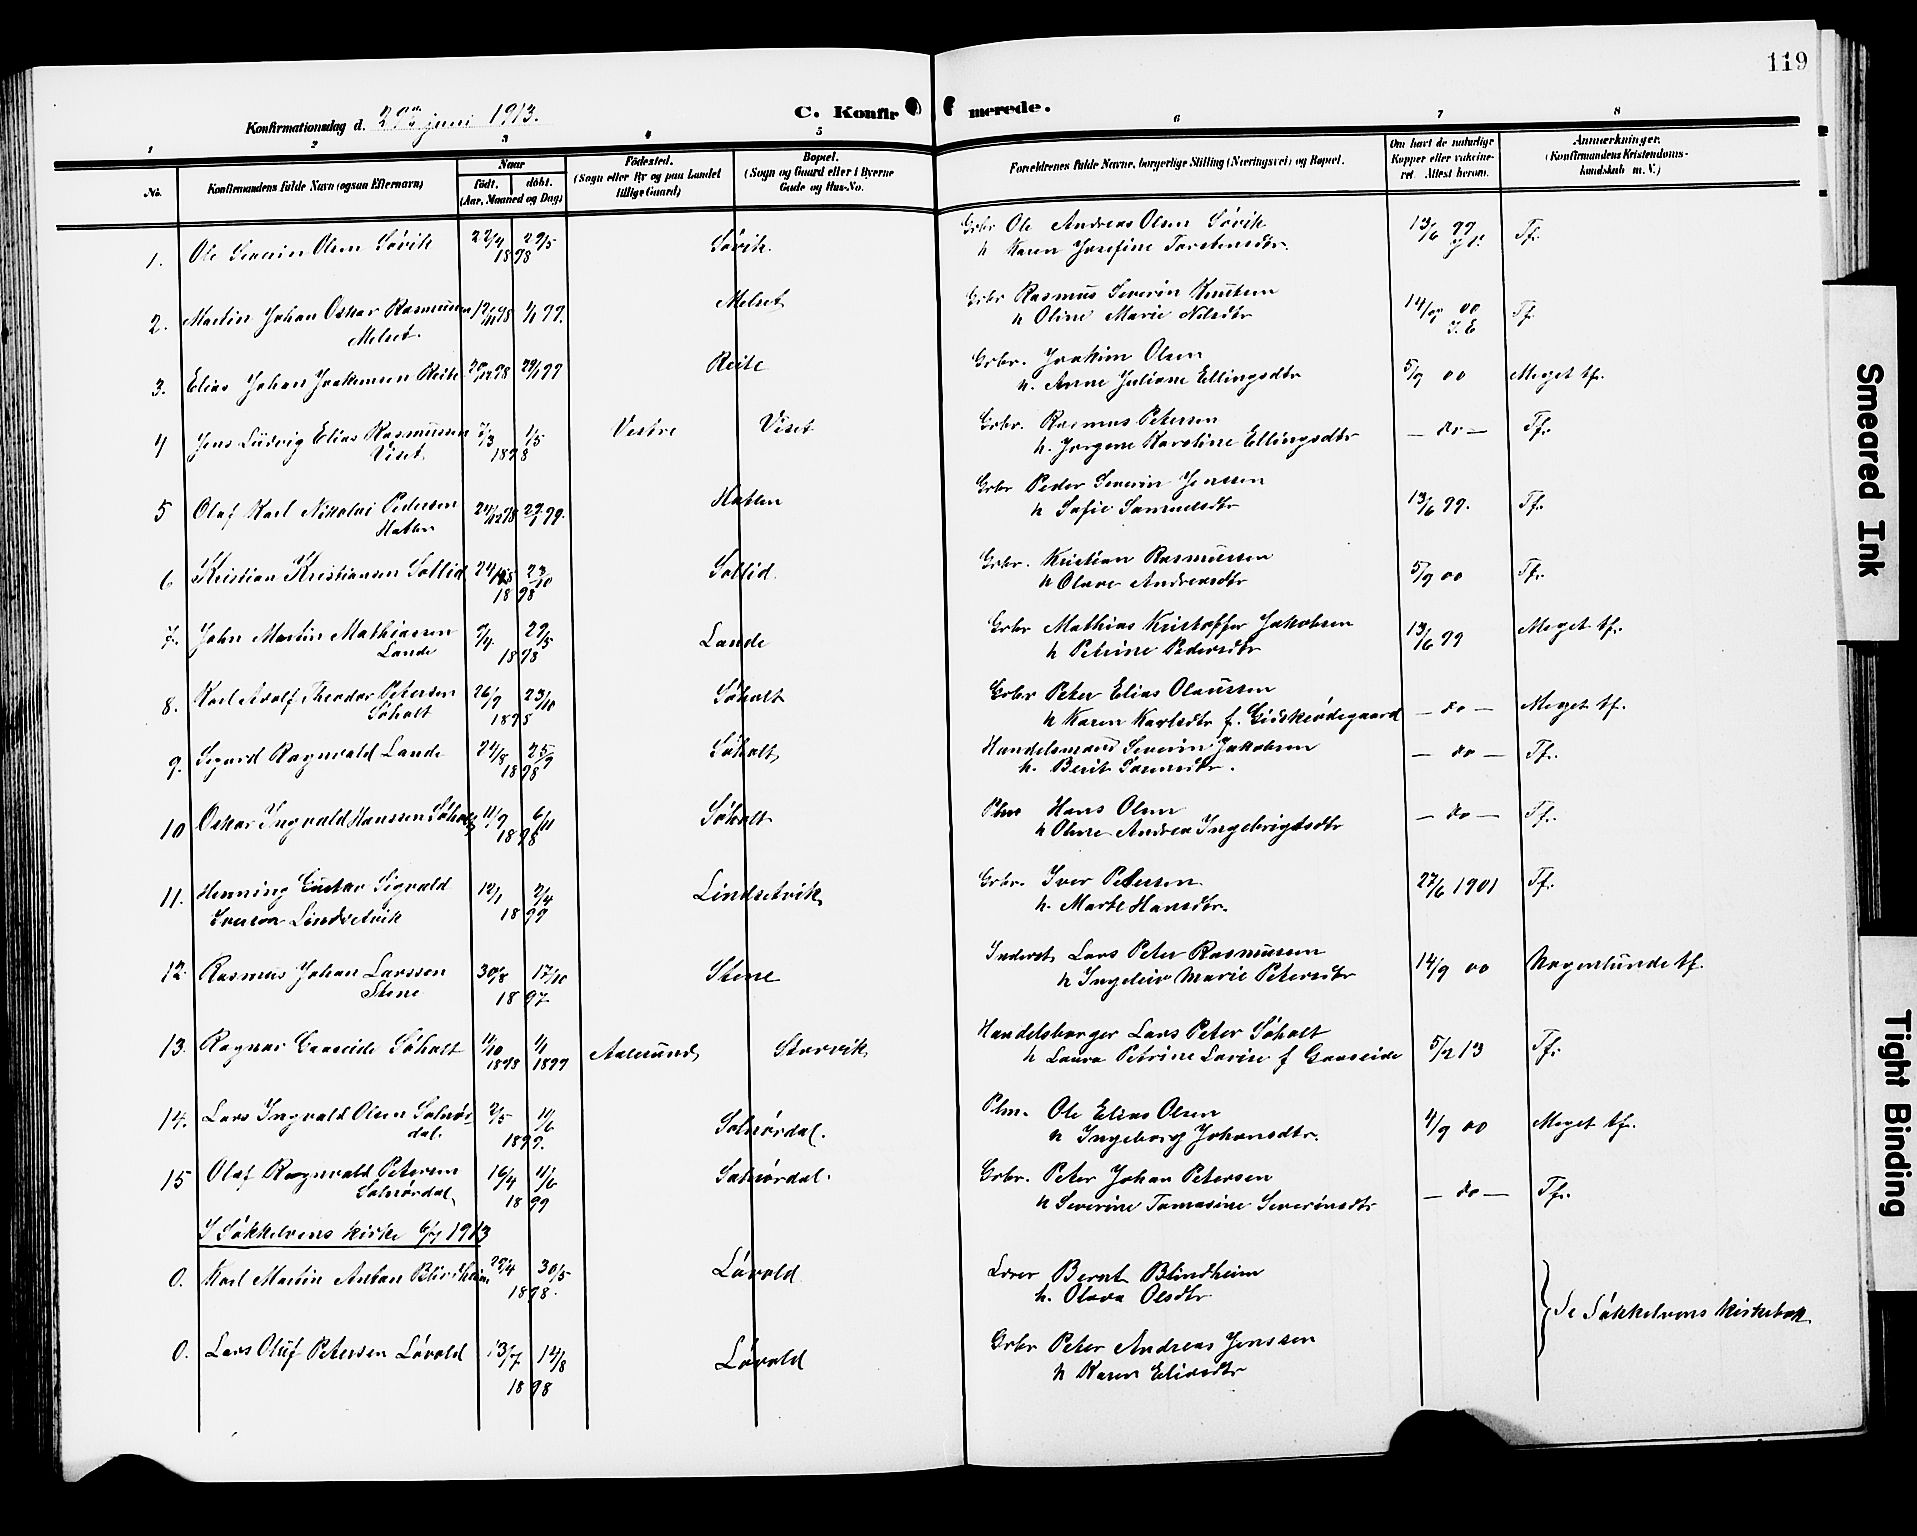 119
Konfirmationsdag d. 29de juni 1913.
C. Konfir merede.
1 2 3 4 5 6 7 8
No.
Konfirmandens fulde Navn (ogsaa Efternavn)
Naar
født. døbt.
(Aar, Maaned og Dag)
Fødested.
(Sogn eller By og paa Landet
tillige Gaard)
Bopæl.
(Sogn og Gaard eller i Byerne
Gade og Hus-No.
Forældrenes fulde Navne, borgerlige Stilling (Næringsvei) og Bopæl.
Om havt de naturlige
Kopper eller vakcine-
ret. Attest herom.
Anmærkninger.
(Konfirmandens Kristendoms-
kundskab m. V.)
1. Ole Severin Olsen Søvik 29/5 1898 Søvik. Grbr Ole Andreas Olsen Søvik 13/6 99 Tf.
h Karen Josefine Torstensdtr.
2. Martin Johan Oskar Rasmussen 12/11 98 1/1 99. Melset Grbr Rasmus Severin Knutsen 14/9 00 Tf.
Melset. h Oline Marie Nilsdtr
3. Elias Johan Joakimsen Reite 29/1 99 Reite Grbr. Joakim Olsen 5/9 00 Meget tf.
h. Anne Juliane Ellingsdtr
4 Jens Ludvig Elias Rasmussen 7/3 1/5 Vestre Viset Grbr. Rasmus Petersen — do — Tf.
Viset. 1898 h. Jørgene Karoline Ellingsdtr
5 Olaf Karl Nikolai Pedersen 29/1 99. Hatlen Grbr Peder Severin Jenssen 13/6 99. Tf.
Hatlen h Sofie Samuelsdtr
6 Kristian Kristiansen Sollid 23/10 Sollid. Grbr. Kristian Rasmussen 5/9 00 Tf.
1898 h Olave Andreasdtr
7. John Martin Mathiassen 9/4 29/5 Lande Grbr Mathias Kristoffer Jakobsen 13/6 99 Meget tf.
Lande 1898 h Petrine Pedersdtr
8. Karl Adolf Theodor Petersen 26/9 23/10 Søholt Grbr Peter Elias Olaussen — do — Meget tf.
Søholt 1898 h Karen Karlsdtr f. Giskeødegaard
9. Sigurd Ragnvald Lande 24/8 25/9 Søholt, Handelsmand Severin Jakobsen — do — Tf.
1898 h. Berit
10 Oskar Ingvald Hanssen Søholt 11/9 6/11 Søholt Plm Hans Olsen — do — Tf.
1898 h Oline Andrea Ingebrigtsdtr
11. Henning Gustav Sigvald 12/1 2/4 Lindsetvik Grbr. Iver Petersen 27/6 1901 Tf.
Iversen Lindsetvik 1899 h. Marte Hansdtr.
12. Rasmus Johan Larssen 30/8 17/10 Stene Inderst Lars Peter Rasmussen 14/9 00 Nogenlunde tf.
Stene 1897 h Ingeleiv Marie Petersdtr
13. Ragnar Gaaseide Søholt 11/10 1/1 Aalesund, Storvik, Handelsborger Lars Peter Søholt 5/2 13 Tf.
1898 1899 h Laura Petrine Lovise f Gaaseide
14. Lars Ingvald Olsen Solnør- 2/5 11/6 Solnørdal. Plm. Ole Elias Olsen 4/9 00 Meget tf.
dal. 1899. h Ingeborg Johansdtr.
15 Olaf Ragnvald Petersen 16/4 11/6 Solnørdal. Grbr. Peter Johan Petersen — do — Tf.
Solnørdal, 1899 h Severine Tomasine Severinsdtr
I Søkkelvens kirke 6/7 1913
0. Karl Martin Antan Blindheim 29/4 30/5 Løvold Lærer Bernt Blindheim
1898. h. Olava Olsdtr
Se Søkkelvens kirkebok
0. Lars Oluf Petersen Løvold 13/7 14/8 Løvold Grbr Peter Andreas Jenssen
1898 h Karen Eliasdtr
Smeared Ink
Tight Binding